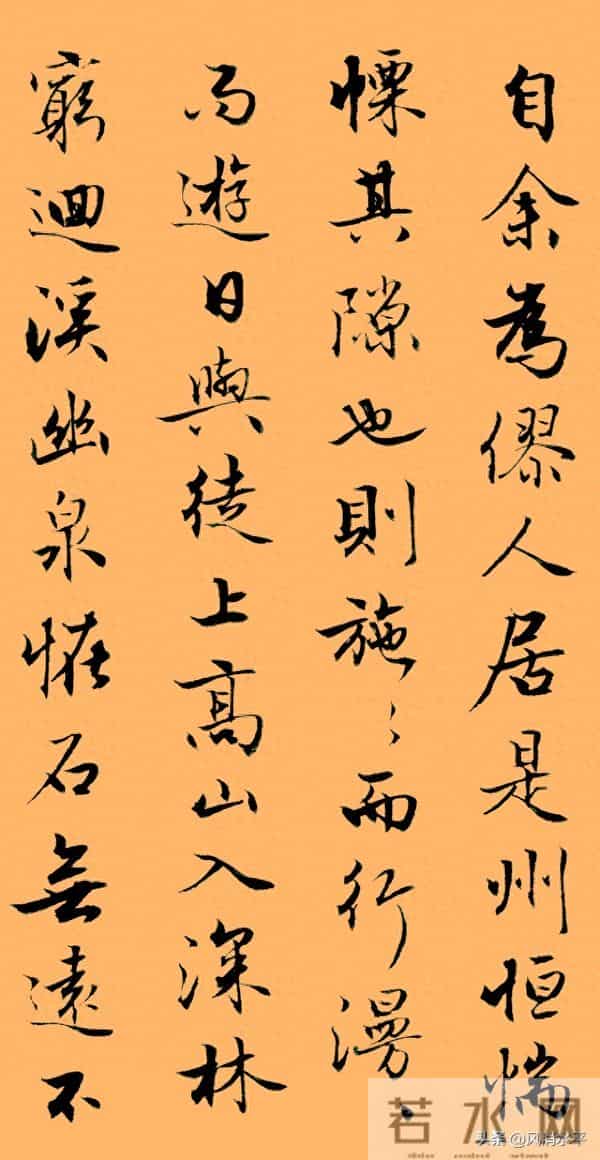 自余為僇人居是州恒惴
慄其隙也則施々而行漫々
而遊日與徒上高山入深林
窮迴溪幽泉恠石無遠不
若水网
头条@风清水平